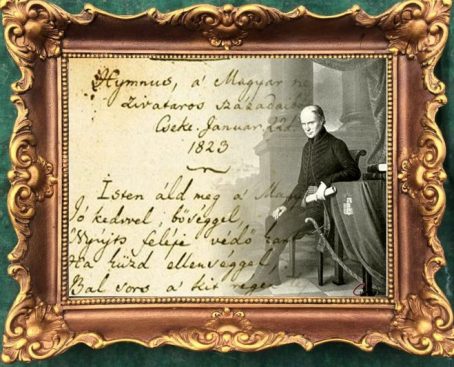 Hymnus, a' Magyar né
zivataros századaib
Cseke Januar. 22d.
1823
Isten áld meg a' Magy
Jó kedvvel, bőséggel,
Nyújts feléje védő kar
Ha küzd ellenséggel,
Bal sors a' kit régen